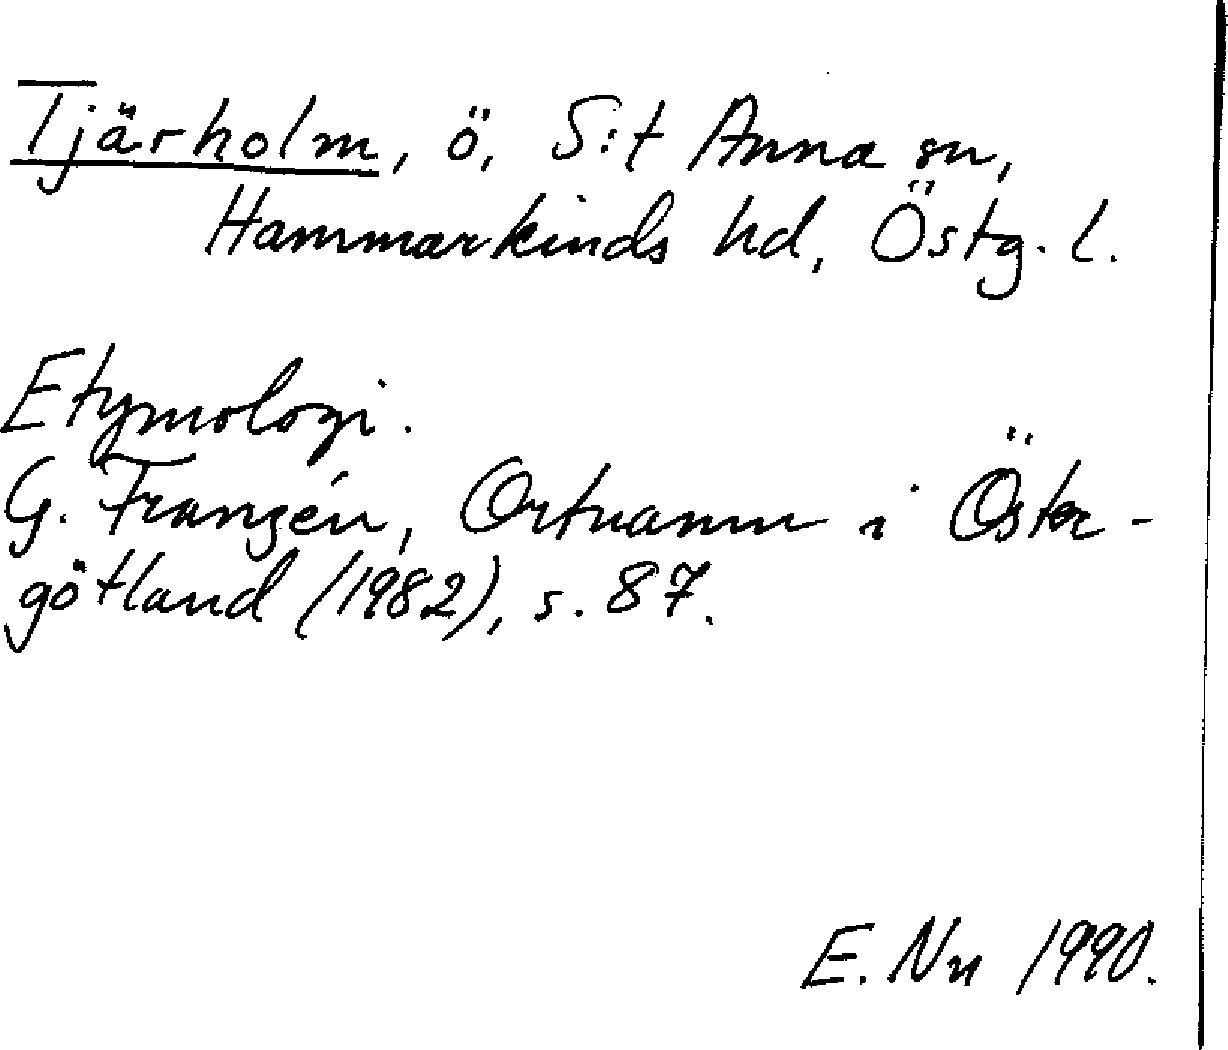 Tjärholm, ö, S:t Anna sn,
Hammarkinds hd, Östg. l.
Etymologi.
G. Franzén, Ortnamn i Öster-
götland (1982), s. 87.
E. Nn 1990.